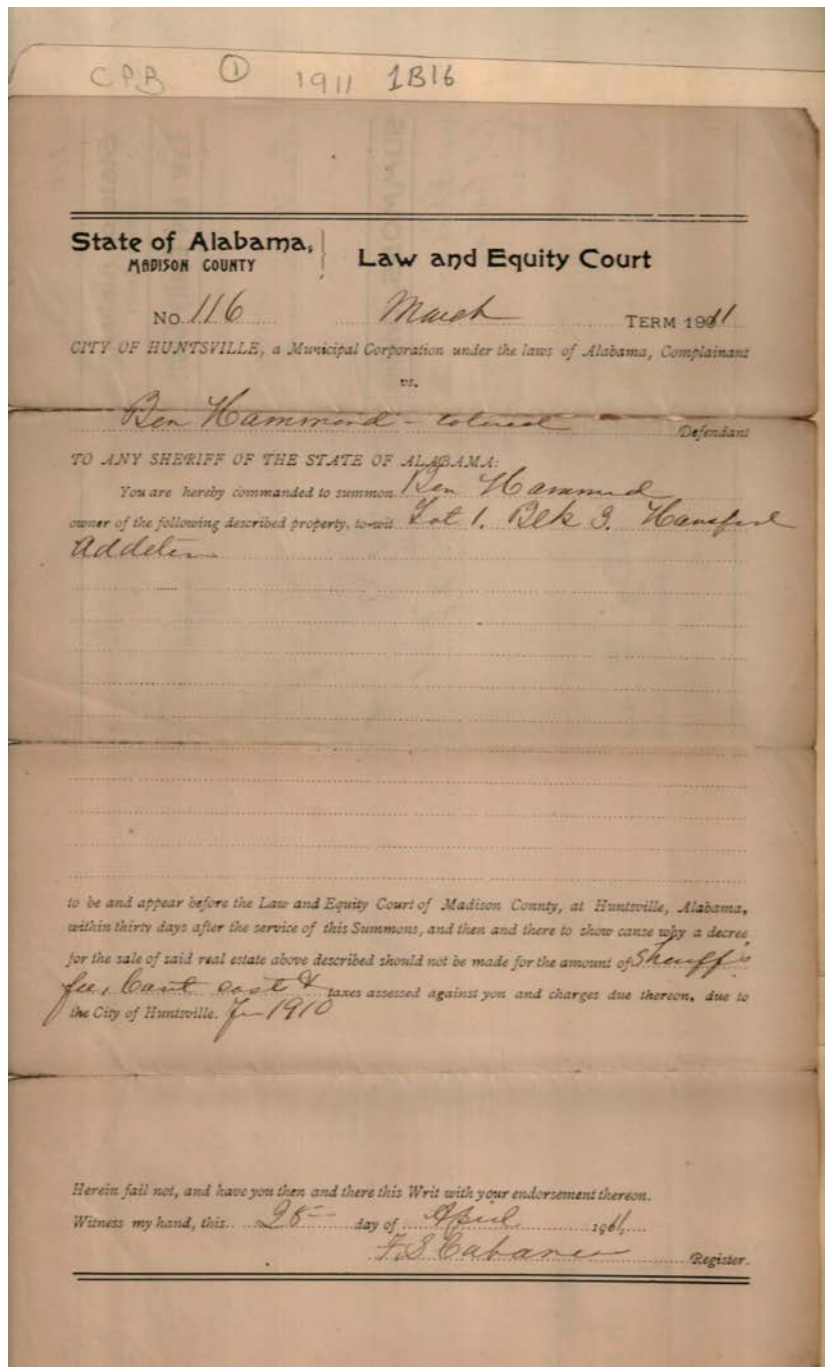 CPB ① 1911 1B16
State of Alabama,
MADISON COUNTY
Law and Equity Court
No. 116 March TERM 1911
CITY OF HUNTSVILLE, a Municipal Corporation under the laws of Alabama, Complainant
vs.
Ben Hammond - colored Defendant
TO ANY SHERIFF OF THE STATE OF ALABAMA:
You are hereby commanded to summon Ben Hammond
owner of the following described property, to-wit Lot 1. Blk 3.
Addition
to be and appear before the Law and Equity Court of Madison County, at Huntsville, Alabama,
within thirty days after the service of this Summons, and then and there to show cause why a decree
for the sale of said real estate above described should not be made for the amount of Sheriff's
fee, Court cost & taxes assessed against you and charges due thereon, due to
the City of Huntsville. For 1910
Herein fail not, and have you then and there this Writ with your endorsement thereon.
Witness my hand, this 28 day of April 1911
F.S. Cabaniss Register.